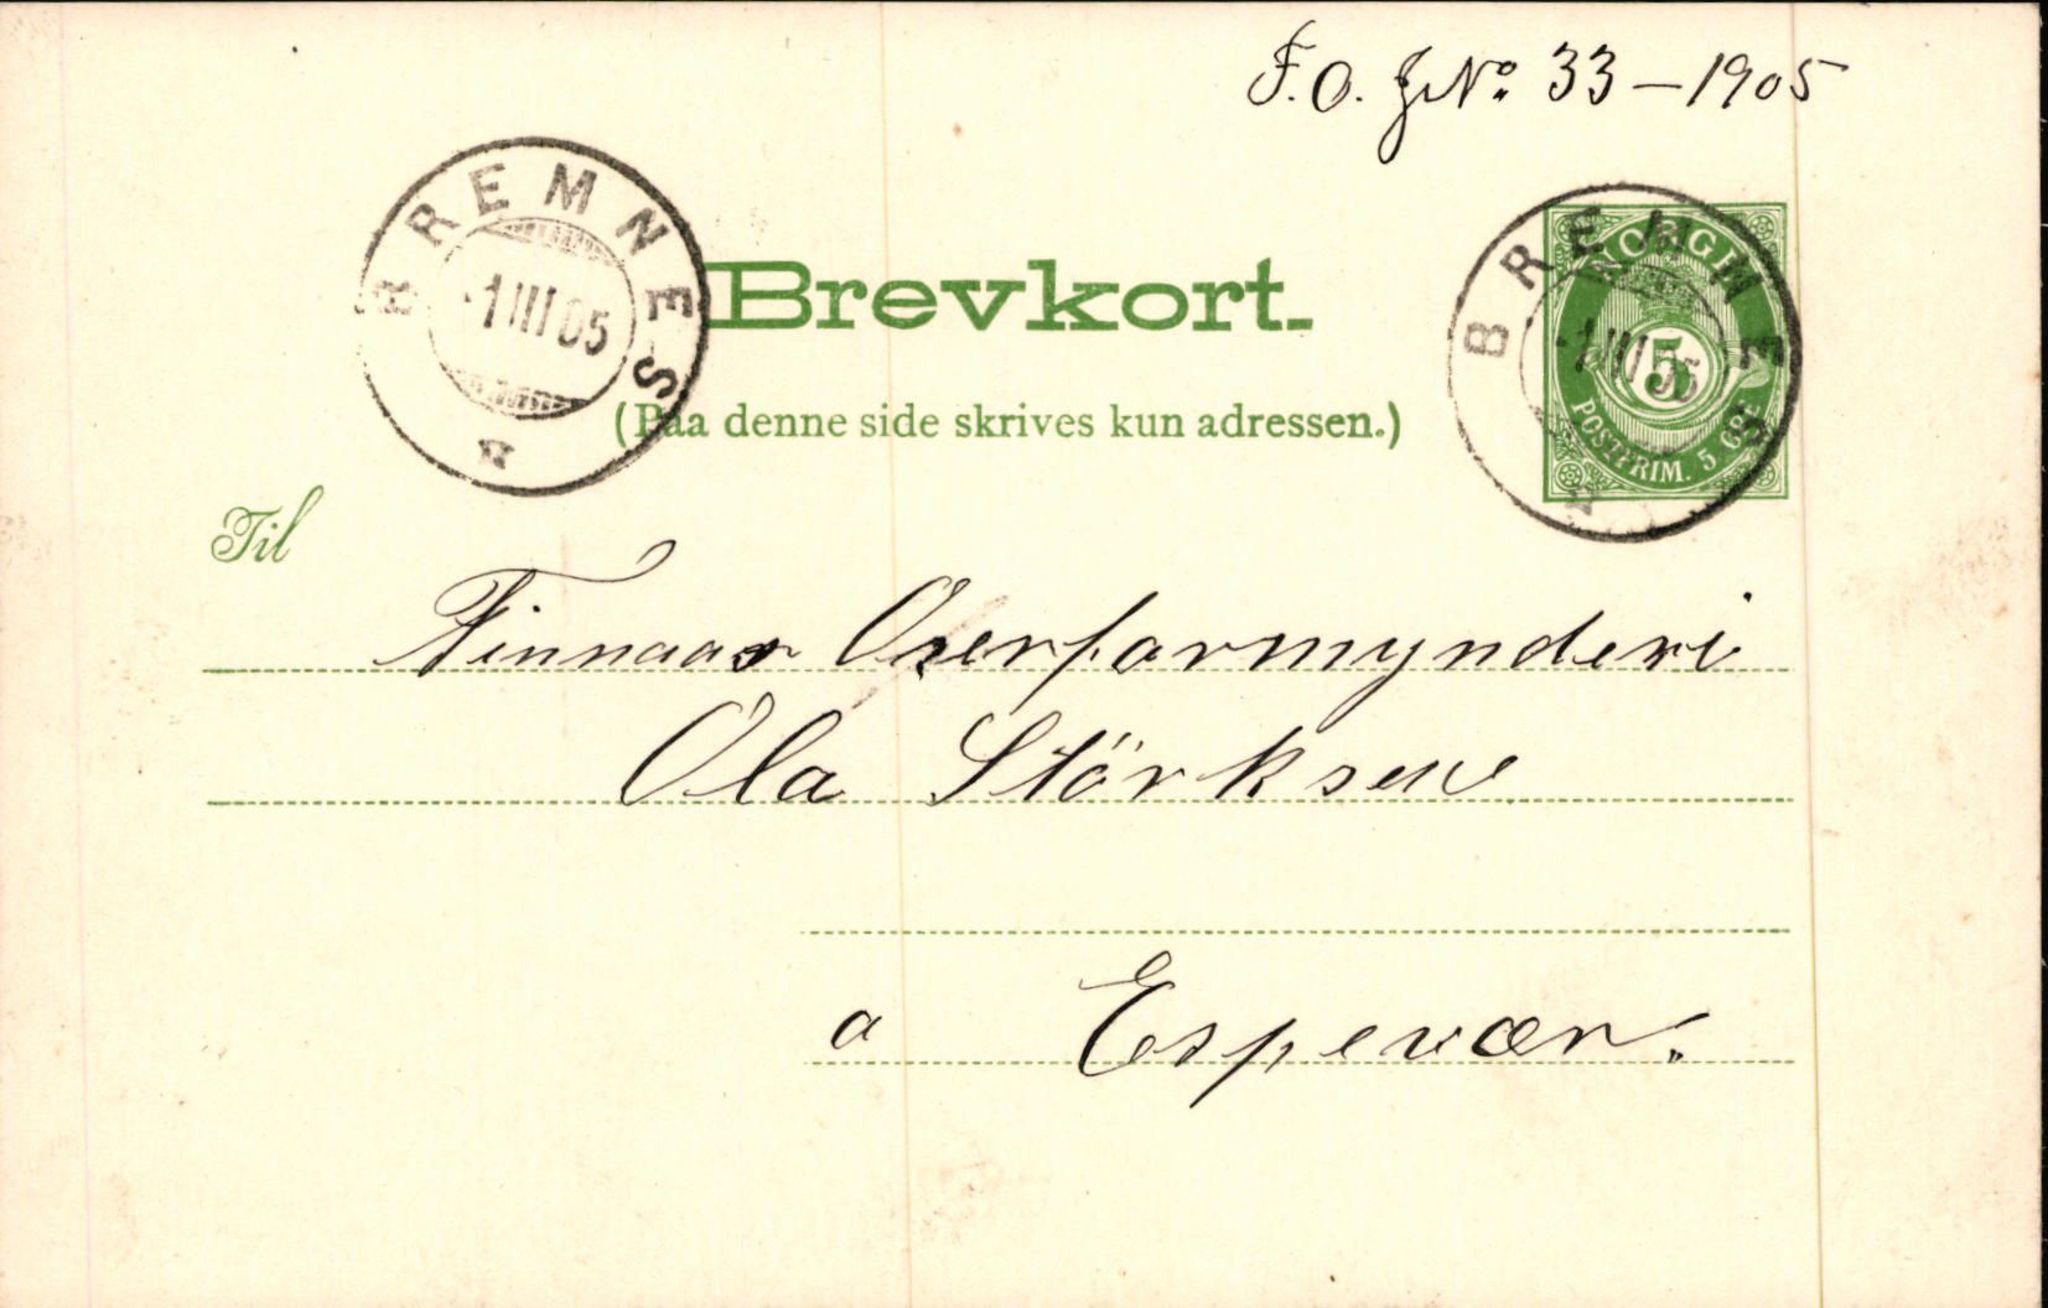 F. O. J No. 33 – 1905
BREMNES
1 III 05
Brevkort.
BREMNES
1 III 05
NORGE
5
POSTFRIM. 5 ØRE
(Paa denne side skrives kun adressen.)
Til
Finnaas Overformynderi
Ola Störksen
a Espevær.